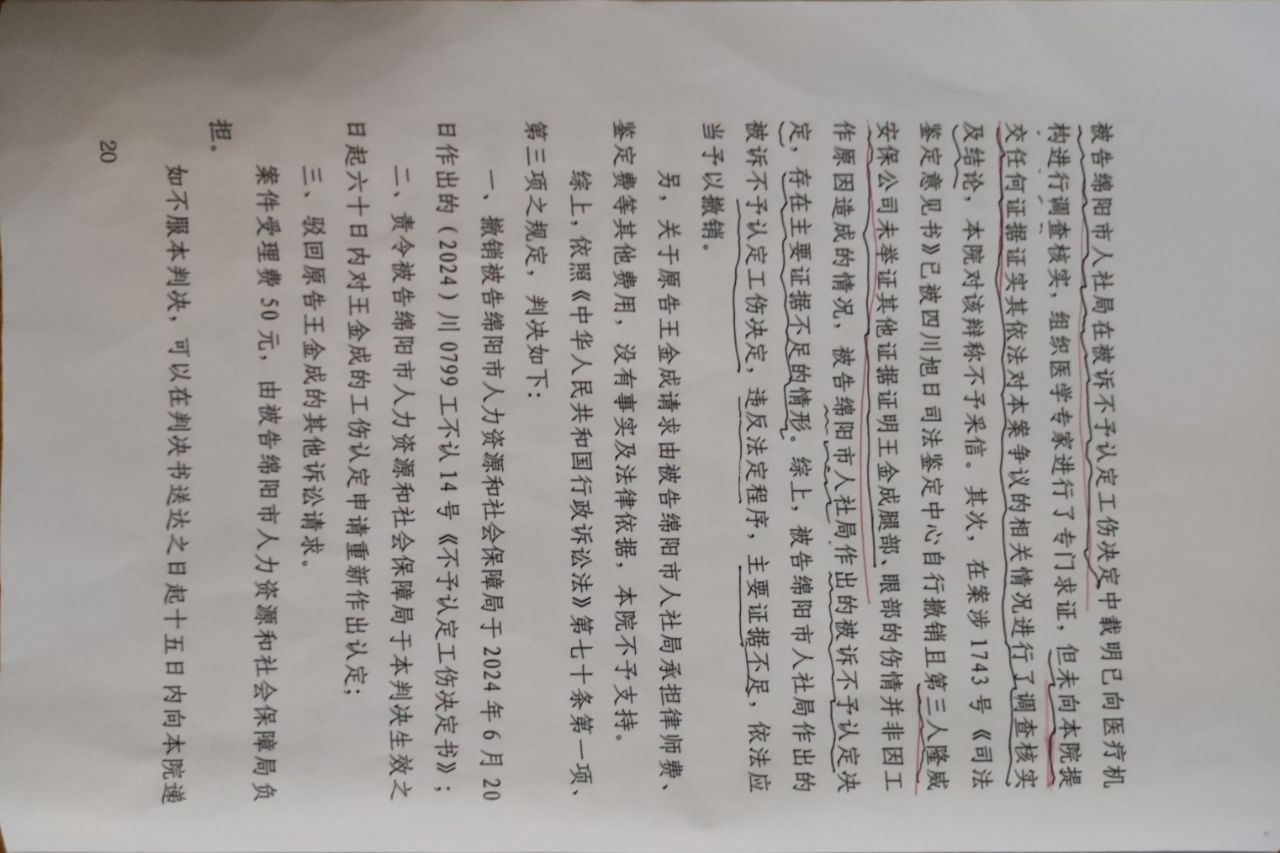 被告绵阳市人社局在被诉不予认定工伤决定中载明已向医疗机
构进行调查核实，组织医学专家进行了专门求证，但未向本院提
交任何证据证实其依法对本案争议的相关情况进行了调查核实
及结论，本院对该辩称不予采信。其次，在案涉1743号《司法
鉴定意见书》已被四川旭日司法鉴定中心自行撤销且第三人隆威
安保公司未举证其他证据证明王金成腿部、眼部的伤情并非因工
作原因造成的情况，被告绵阳市人社局作出的被诉不予认定决
定，存在主要证据不足的情形。综上，被告绵阳市人社局作出的
被诉不予认定工伤决定，违反法定程序，主要证据不足，依法应
当予以撤销。
另，关于原告王金成请求由被告绵阳市人社局承担律师费、
鉴定费等其他费用，没有事实及法律依据，本院不予支持。
综上，依照《中华人民共和国行政诉讼法》第七十条第一项、
第三项之规定，判决如下：
一、撤销被告绵阳市人力资源和社会保障局于2024年6月20
日作出的（2024）川0799工不认14号《不予认定工伤决定书》；
二、责令被告绵阳市人力资源和社会保障局于本判决生效之
日起六十日内对王金成的工伤认定申请重新作出认定；
三、驳回原告王金成的其他诉讼请求。
案件受理费50元，由被告绵阳市人力资源和社会保障局负
担。
如不服本判决，可以在判决书送达之日起十五日内向本院递
20